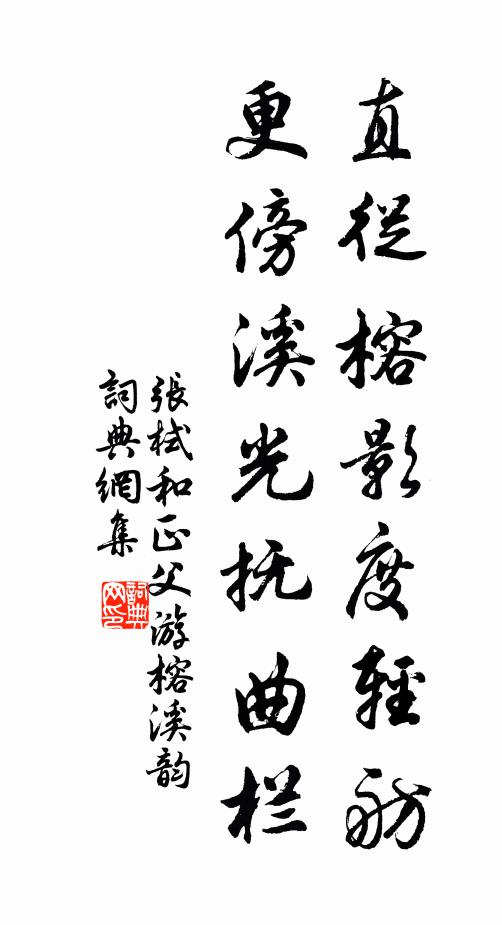 直從榕影度輕舫
更傍溪光抚曲栏
張栻和正父游榕溪韵
詞典網集
詞典网印